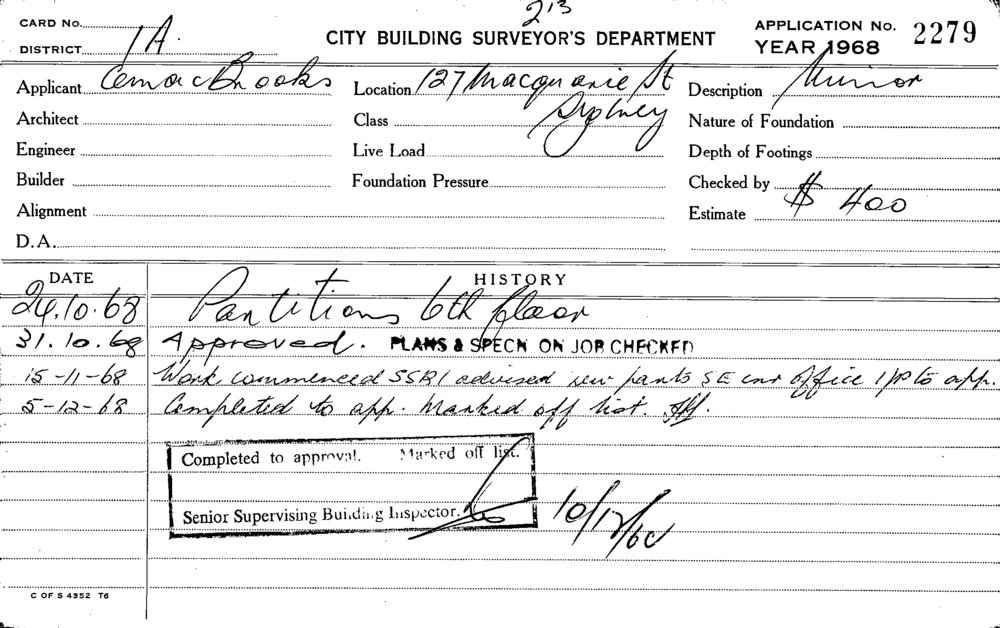 213
CARD No.
DISTRICT 1A.
CITY BUILDING SURVEYOR'S DEPARTMENT
APPLICATION No. 2279
YEAR 1968
Applicant Cemac Brooks
Location 127 Macquarie St
Sydney
Description Minor
Architect
Class
Nature of Foundation
Engineer
Live Load
Depth of Footings
Builder
Foundation Pressure
Checked by
Alignment
Estimate $ 400
D.A.
DATE HISTORY
24.10.68 Partitions 6th floor
31.10.68 Approved. PLANS & SPECN ON JOB CHECKED
15-11-68 Work commenced SSBI advised new partns SE cnr office I/P to app.
5-12-68 Completed to app. Marked off list.
Completed to approval. Marked off list.
Senior Supervising Building Inspector.
10/12/68
C OF S 4352 T6